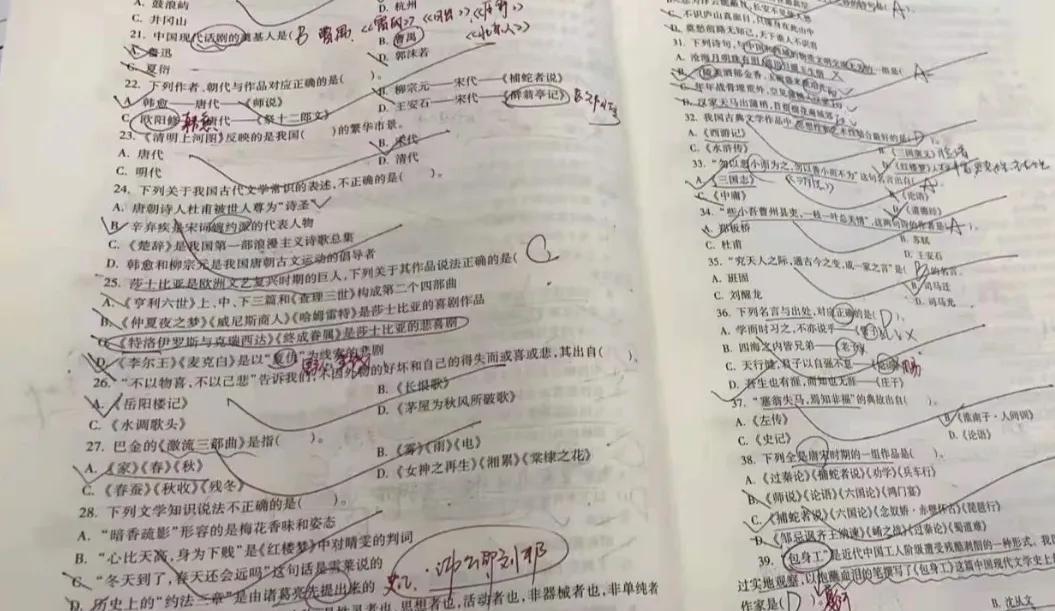 A. 鼓浪屿
D. 杭州
C. 井冈山
21. 中国现代话剧的奠基人是( 曹禺 《雷雨》《日出》《原野》
《北京人》
A. 鲁迅
B. 曹禺
C. 夏衍
D. 郭沫若
22. 下列作者、朝代与作品对应正确的是( )。
A. 韩愈——唐代——《师说》
B. 柳宗元——宋代——《捕蛇者说》
C. 欧阳修——唐代——《祭十二郎文》
韩愈
D. 王安石——宋代——《醉翁亭记》
23. 《清明上河图》反映的是我国( )的繁华市景。
A. 唐代
B. 宋代
C. 明代
D. 清代
24. 下列关于我国古代文学常识的表述,不正确的是( )。
A. 唐朝诗人杜甫被世人尊为“诗圣”
B. 辛弃疾是宋词婉约派的代表人物
C. 《楚辞》是我国第一部浪漫主义诗歌总集
D. 韩愈和柳宗元是我国唐朝古文运动的倡导者
25. 莎士比亚是欧洲文艺复兴时期的巨人,下列关于其作品说法正确的是( C
A. 《亨利六世》上、中、下三篇和《查理三世》构成第二个四部曲
B. 《仲夏夜之梦》《威尼斯商人》《哈姆雷特》是莎士比亚的喜剧作品
C. 《特洛伊罗斯与克瑞西达》《终成眷属》是莎士比亚的悲喜剧
D. 《李尔王》《麦克白》是以“复仇”为线索的悲剧
26. “不以物喜,不以己悲”告诉我们,不因外物的好坏和自己的得失而或喜或悲,其出自( )。
A. 《岳阳楼记》
B. 《长恨歌》
C. 《水调歌头》
D. 《茅屋为秋风所破歌》
27. 巴金的《激流三部曲》是指( )。
A. 《家》《春》《秋》
B. 《雾》《雨》《电》
C. 《春蚕》《秋收》《残冬》
D. 《女神之再生》《湘累》《棠棣之花》
28. 下列文学知识说法不正确的是( )。
A. “暗香疏影”形容的是梅花香味和姿态
B. “心比天高,身为下贱”是《红楼梦》中对晴雯的判词
C. “冬天到了,春天还会远吗”这句话是雪莱说的
D. 历史上的“约法三章”是由诸葛亮先提出来的
思想者也,活动者也,非器械者也,非单纯者
A
C. 不识庐山真面目,只缘身在此山中
D. 莫愁前路无知己,天下谁人不识君
A. 沧海月明珠有泪
32. 我国古典文学作品中,思想性和艺术性结合最好的是( D
A. 《西游记》
B. 《三国演义》
C. 《水浒传》
D. 《红楼梦》
33. “勿以恶小而为之,勿以善小而不为”这句名言出自( A
A. 《三国志》
《论语》
C. 《中庸》
D. 《道德经》
34. “些小吾曹州县吏,一枝一叶总关情”,这两句诗的作者是( A )。
A. 郑板桥
B. 苏轼
C. 杜甫
D. 王安石
35. “究天人之际,通古今之变,成一家之言”是( B )的名言。
A. 班固
B. 司马迁
C. 刘醒龙
D. 司马光
36. 下列名言与出处,对应正确的是( D )。
A. 学而时习之,不亦说乎
B. 四海之内皆兄弟——老子
C. 天行健,君子以自强不息
D. 吾生也有涯,而知也无涯——《庄子》
37. “塞翁失马,焉知非福”的典故出自( )。
A. 《左传》
B. 《淮南子·人间训》
C. 《史记》
D. 《论语》
38. 下列全是唐宋时期的一组作品是( )。
A. 《过秦论》《捕蛇者说》《劝学》《兵车行》
B. 《师说》《论语》《六国论》《鸿门宴》
C. 《捕蛇者说》《六国论》《念奴娇·赤壁怀古》《琵琶行》
D. 《邹忌讽齐王纳谏》《过秦论》《蜀道难》
39. 《包身工》是近代中国工人阶级遭受残酷剥削的一种形式。我
过实地观察,以饱蘸血泪的笔撰写了《包身工》这篇中国现代文学史上
作家是( D )
B. 沈从文